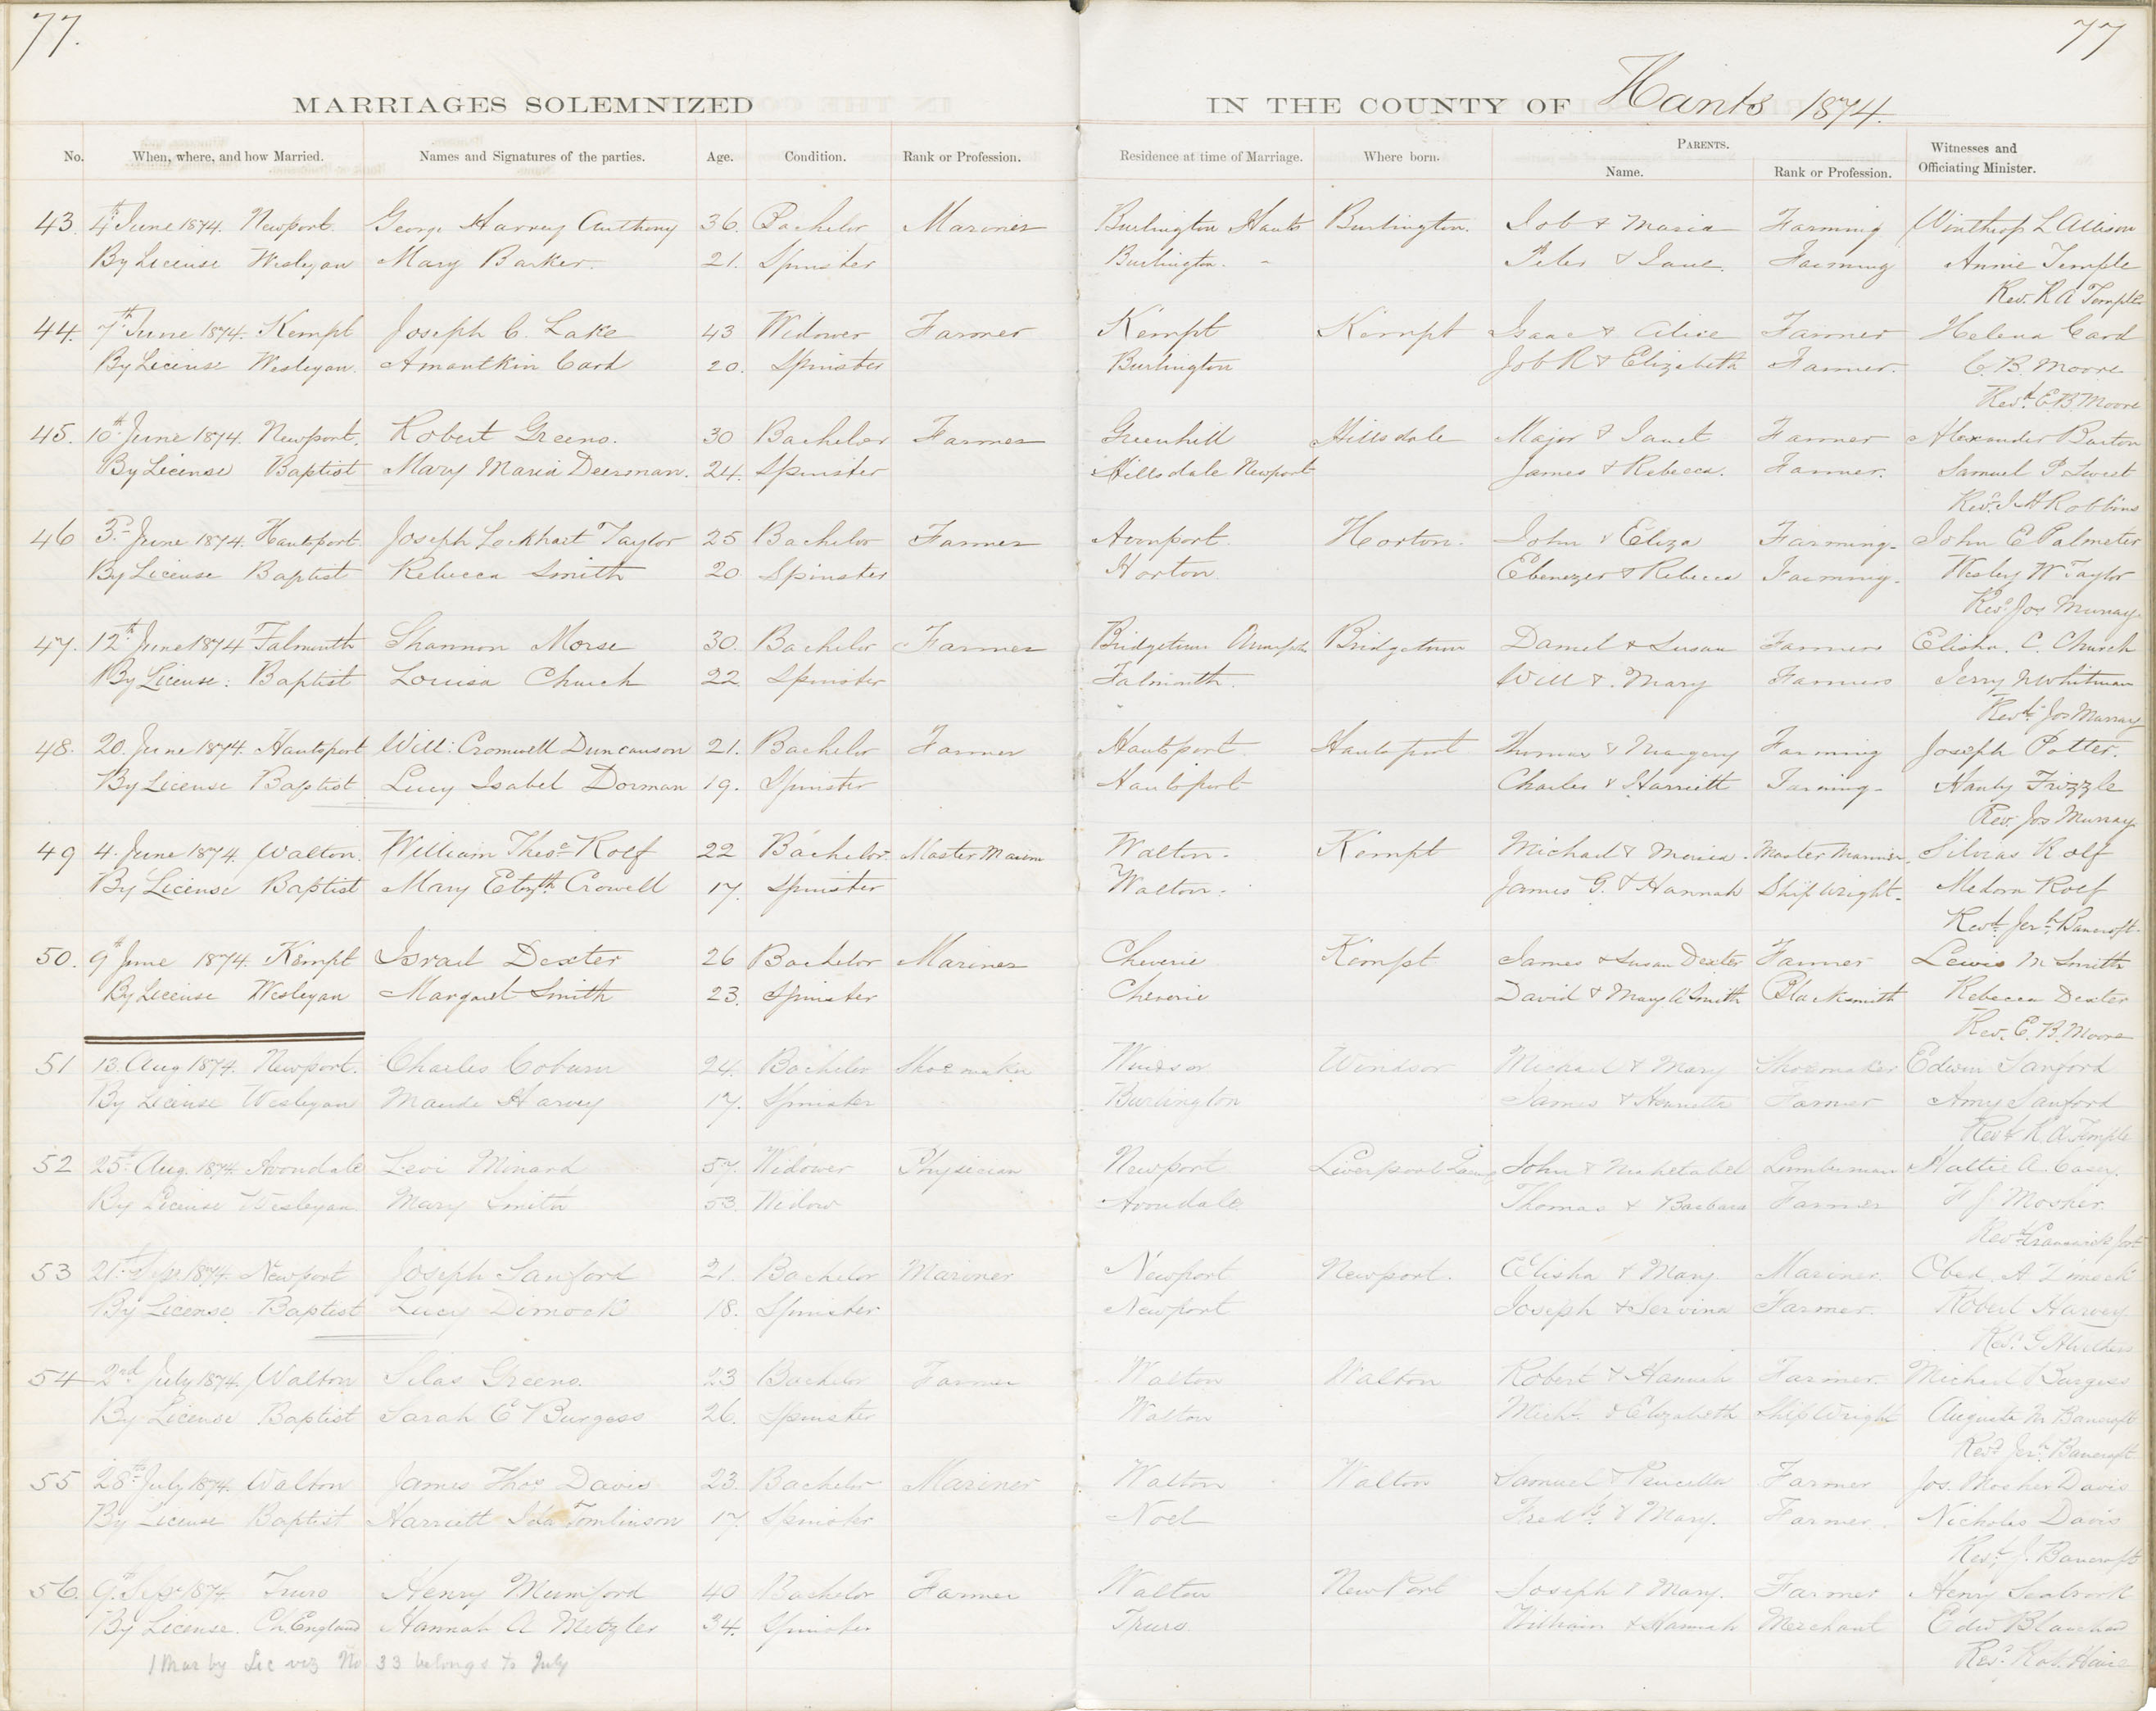 77.
77
MARRIAGES SOLEMNIZED IN THE COUNTY OF Hants 1874.
No. When, where, and how Married. Names and Signatures of the parties. Age. Condition. Rank or Profession. Residence at time of Marriage. Where born. PARENTS. Witnesses and
Name. Rank or Profession. Officiating Minister.
43. 4th June 1874. Newport. George Harvey Anthony 36. Bachelor Mariner Burlington Hants Burlington. Job & Maria Farming Winthrop L Allison
By License Wesleyan Mary Barker. 21. Spinster Burlington. Peter & Jane. Farming Annie Temple
Rev. R A Temple
44. 7th June 1874. Kempt Joseph C. Lake 43 Widower Farmer Kempt Kempt Isaac & Alice Farmer Helena Card
By License Wesleyan. Amantkin Card 20. Spinster Burlington Job R & Elizabeth Farmer. C. B. Moore
Revd. E B Moore
45. 10th June 1874. Newport. Robert Greeno. 30 Bachelor Farmer Greenhill Hillsdale Major & Janet Farmer Alexander Burton
By License Baptist Mary Maria Deersman. 24. Spinster Hillsdale Newport James & Rebecca. Farmer. Samuel P Sweet
Revd. J H Robbins
46 3rd June 1874. Hantsport. Joseph Lockhart Taylor 25 Bachelor Farmer Avonport. Horton. John & Eliza Farming. John E Palmeter
By License Baptist Rebecca Smith 20 Spinster Horton Ebenezer & Rebecca Farming. Wesley W Taylor
Revd. Jos Murray.
47. 12th June 1874 Falmouth Shannon Morse 30. Bachelor Farmer Bridgetown Annapolis Bridgetown Daniel & Susan Farmers Elisha. C. Church
By License. Baptist Louisa Church 22 Spinster Falmouth. Will & Mary Farmers Jerry N Whitman
Revd. Jos Murray
48. 20. June 1874. Hantsport Will: Cromwell Duncanson 21. Bachelor Farmer Hantsport Hantsport Thomas & Margery Farming Joseph Potter.
By License Baptist Lucy Isabel Dorman 19. Spinster Hantsport Charles & Harriett Farming Hanly Frizzle
Rev. Jos Murray
49 4. June 1874. Walton. William Thos. Rolf 22 Bachelor. Master Marin Walton. Kempt Michael & Maria. Master Mariner. Silvias Rolf
By License Baptist Mary Elizth Crowell 17. Spinster Walton. James G. & Hannah Ship Wright. Medora Rolf
Revd. Jerh. Bancroft.
50. 9th June 1874. Kempt Israel Dexter 26 Bachelor Mariner Cheverie Kempt James & Susan Dexter Farmer Lewis M Smith
By License Wesleyan Margaret Smith 23. Spinster Cheverie David & Mary A Smith Blacksmith Rebecca Dexter
Rev. E. B. Moore
51 13. Aug 1874. Newport. Charles Coburn 24. Bachelor Shoemaker Windsor Windsor Michael & Mary Shoemaker Edwin Sanford
By License Wesleyan Maude Harvey 17. Spinster Burlington James & Henrietta Farmer Amy Sanford
Revd R A Temple
52 25th Aug. 1874 Avondale Levi Minard 57. Widower Physician Newport Liverpool John & Mehetabel Lumberman Hattie A. Casey.
By License Wesleyan Mary Smith 53. Widow Avondale Thomas & Barbara Farmer F J Mosher.
53 21st Sepr 1874. Newport Joseph Sanford 21. Bachelor Mariner Newport Newport. Elisha & Mary. Mariner. Obed. A. Dimock
By License. Baptist Lucy Dimock 18. Spinster Newport Joseph & Servina Farmer. Robert Harvey
54 2nd July 1874. Walton Silas Greeno. 23 Bachelor Farmer Walton Walton Robert & Hannah Farmer. Michael Burgess
By License Baptist Sarah E Burgess 26. Spinster Walton Michl. & Elizabeth Ship Wright Augusta M Bancroft
Revd. Jerh. Bancroft
55 28th July 1874. Walton James Thos Davis 23. Bachelor Mariner Walton Walton Samuel & Farmer Jos. Mosher Davis
By License Baptist Harriett Ida Tomlinson 17. Spinster Noel Fredk. & Mary. Farmer. Nicholas Davis
Revd. J. Bancroft
56. 9th Sepr 1874. Truro Henry Mumford 40 Bachelor Farmer Walton New Port Joseph & Mary. Farmer Henry Seabrook
By License. Ch. England Hannah A Metzler 34. Spinster Truro. William & Hannah Merchant Edw
1 Mar by Lic viz No 33 belongs to July